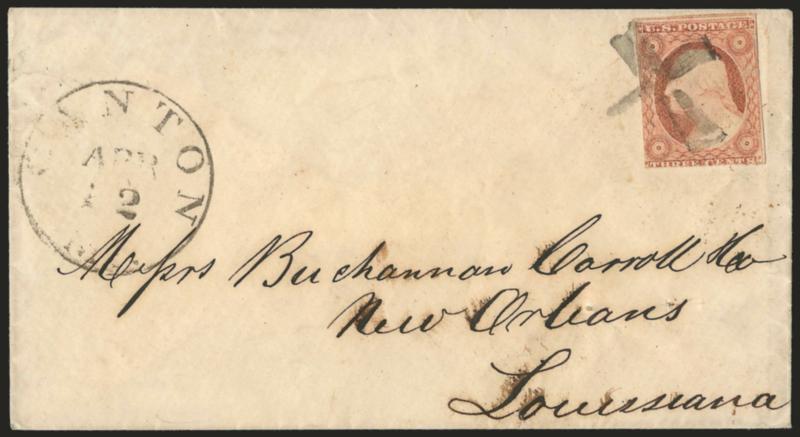 CANTON
APR
12
U.S. POSTAGE
THREE CENTS
Messrs Buchannan Carroll & Co
New Orleans
Louisiana